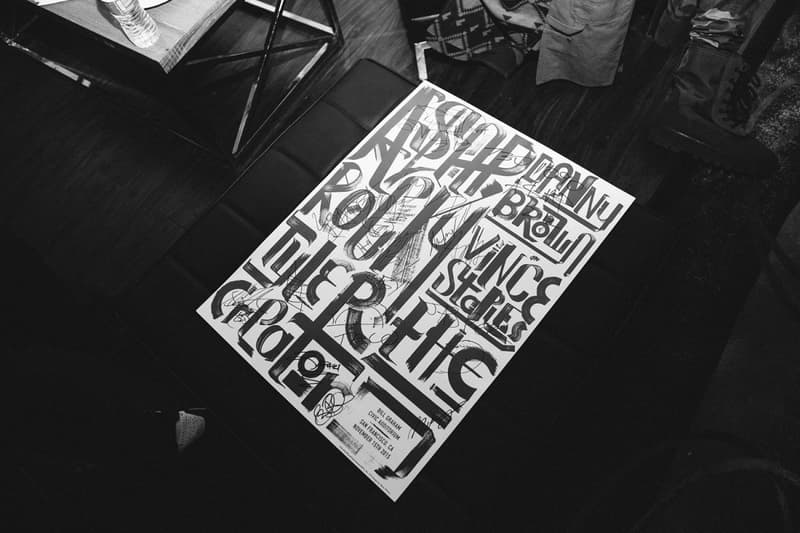 A$AP
ROCKY
TYLER THE
CREATOR
DANNY
BROWN
VINCE
STAPLES
BILL GRAHAM
CIVIC AUDITORIUM
SAN FRANCISCO, CA
NOVEMBER 15TH 2015